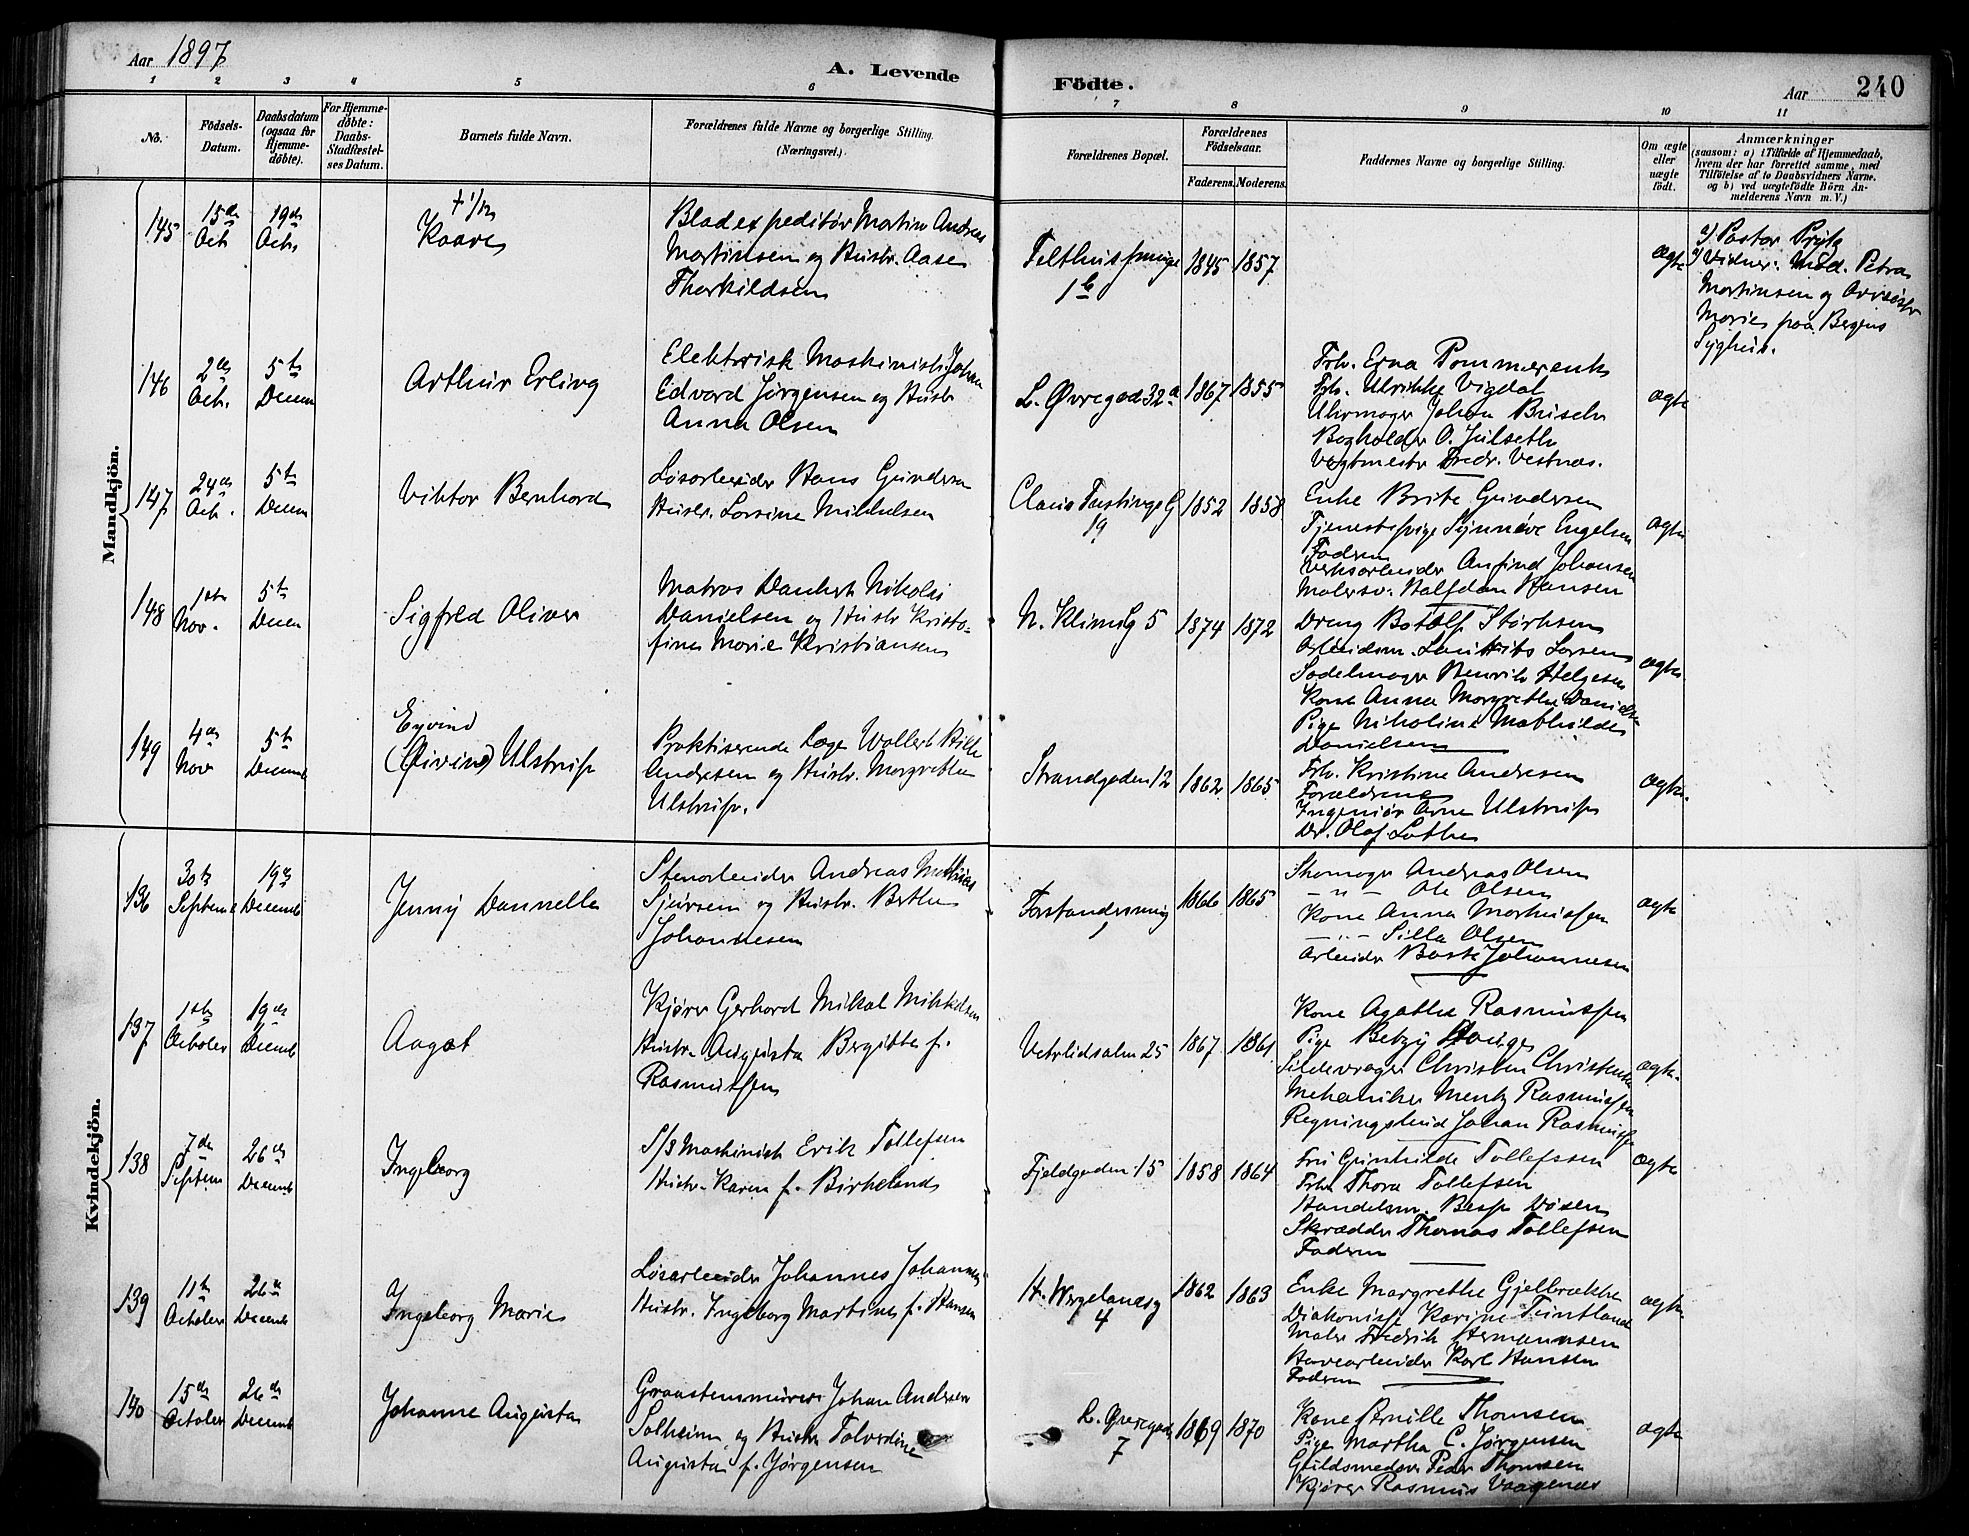 Aar 1897
A. Levende
Födte.
Aar
240
1 2 3 4 5 6 7 8 9 10 11
No.
Födsels-
Datum.
Daabsdatum
(ogsaa for
Hjemme-
döbte).
For Hjemme-
döbte:
Daabs-
Stadfæstel-
ses Datum.
Barnets fulde Navn.
Forældrenes fulde Navne og borgerlige Stilling.
(Næringsvei.)
Forældrenes Bopæl.
Forældrenes
Födselsaar.
Faderens. Moderens.
Faddernes Navne og borgerlige Stilling.
Om ægte
eller
uægte
födt.
Anmærkninger
(saasom: a) i Tilfælde af Hjemmedaab,
hvem der har forrettet samme, med
Tilföielse af to Daabsvidners Navne,
og b) ved uægtefödte Börn An-
melderens Navn m. V.)
Mandkjön.
145
15de
Oct.
19de
Oct.
Kaare
Bladexpeditør Martin Andreas
Martinsen og Hustr. Aase
Thorkildsen
1b
1845
1857
ægte
a) Pastor Prytz
Vidner: Mad. Petra
Martinsen og
Marie paa Bergens
Syghus.
146
2den
Oct.
5te
Decem
Arthur Erling
Elektrisk Maskinist Johan
Edvard Jørgensen og Hustr.
Anna Olsen
L. Øvregad 32a
1867
1855
Frk. Erna Pommerenk
Frk. Ulrikke Vigdal
Uhrmager Johan
Bogholder O. Julseth
Vegtmestr Fredr. Vestnæs.
ægte
147
24de
Oct.
5te
Decem
Viktor Bernhard
Løsarbeider Hans Gundersen
Hustr. Lovsine Mikkelsen
19
1852
1858
Enke Brite Gundersen
Tjenestepige Synnøve Engelsen
Faderen
Verksarbeider Anfind Johansen
Malersv. Halfdan Hansen
ægte
148
1ste
Nov.
5te
Decem
Sigfred Oliver
Matros Dankert Nikolai
Danielsen og Hustr Kristo-
fine Marie Kristiansen
5
1874
1872
Dreng Botolf Størksen
Arbeidsm. Lauritits Larsen
Sadelmager Henrik Helgesen
Kone Anna Margrethe Daniels
Pige Nikoline Mathilde
Danielsen
ægte
149
4de
Nov
5te
Decemb
Eyvind
(Øivind) Ulstrup
Praktiserende Læge Wollert Hille
Andresen og Hustr. Margrethe
Ulstrup.
Strandgaden 12
1862
1865
Frk. Kristine Andresen
Forældrene
Ingeniør Arne Ulstrup
Dr. Olaf Lothe
ægte.
Kvindekjön.
136
30te
Septem
19de
Decemb
Jenny Dannella
Stenarbeider Andreas Mathias
Sjursen og Hustr. Berthe
Johannesen
Forstandersmug
1
1866
1865
Skomager Andreas Olsen
- " - Ole Olsen
Kone Anna
- " - Silla Olsen
Arbeider Johannesen
ægte
137
1ste
October
19de
Decemb
Aagot
Kjører Gerhard Mikal Mikkelsen
Hustr. Augusta Bergitte f.
Rasmussen
Vetrlidsalm 25
1867
1861
Kone Agathe Rasmussen
Pige Betzy Hauge
Sildevrager Christen Christensen
Mekaniker Mentz Rasmussen
Regningsbud Johan Rasmussen
ægte.
138
7de
Septem
26de
Decemb
Ingeborg
S/s Maskinist Erik Tollefsen
Hustr. Karen f. Birkeland
Fjeldgaden 15
1858
1864
Fru Gunhilde Tollefssen
Frk Thora Tollefsen
Handelsm. Døsen
Skrædder Thomas Tollefsen
Faderen
ægte
139
11te
October
26de
Decemb
Ingeborg Marie
Løsarbeider Johannes Johannesen
Hustr. Ingeborg Martine f. Hansen
H. Wergelandsg
4
1862
1863
Enke Margrethe Gjelbrække
Diakonisse Karine Teintland
Maler Fredrik Hermannsen
Havearbeider Karl Hansen
Faderen
ægte.
140
15de
October
26de
Decemb
Johanne Augusta
Graastensmurer Johan Andersen
Solheim og Hustr. Talverdine
Augusta f. Jørgensen
L. Øvregad
7
1869
1870
Kone Pernille Thomsen
Pige Martha C. Jørgensen
Guldsmedsv Peder Thomsen
Kjører Rasmus Vaagenæs
ægte